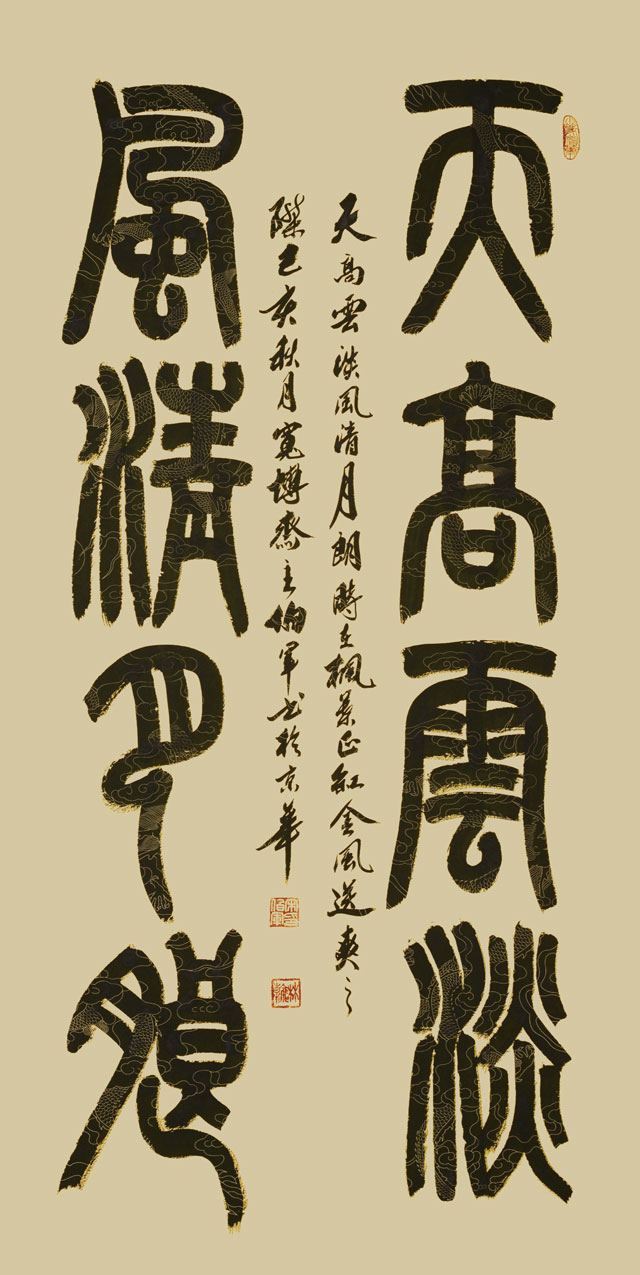 天高雲淡
風清月朗
天高雲淡風清月朗時在楓葉正紅金風送爽之
際己亥秋月寬博齋主佰軍書於京華